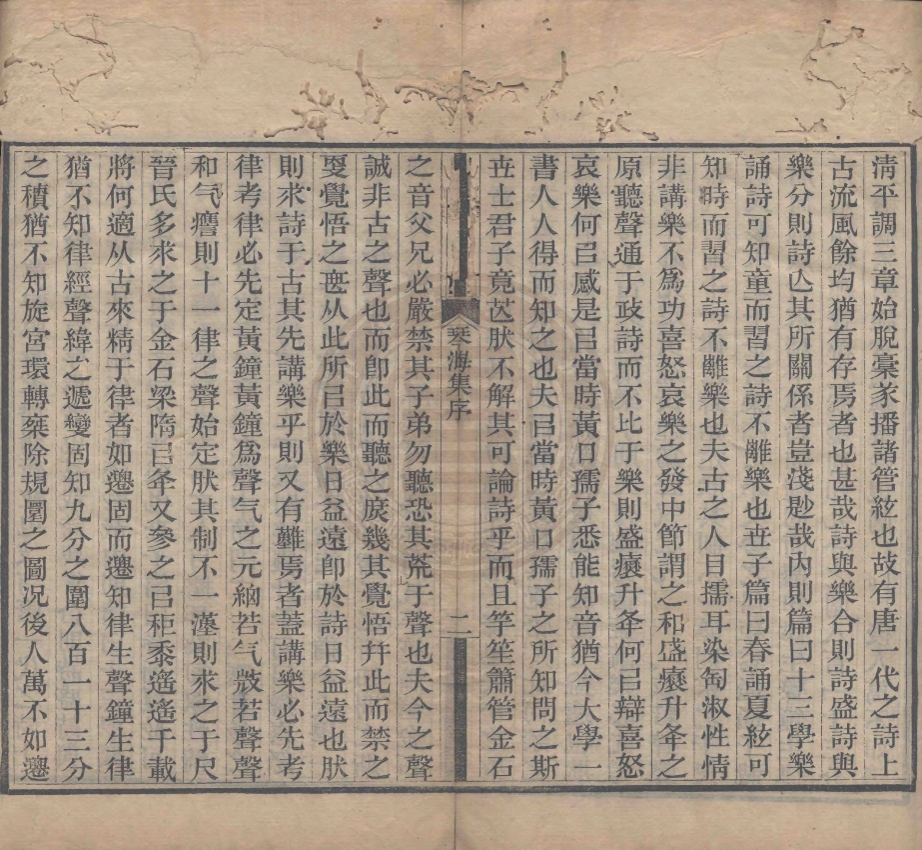 清平調三章始脫稾豖播諸管絃也故有唐一代之詩上
古流風餘均猶有存焉者也甚哉詩與樂合則詩盛詩與
樂分則詩亾其所關係者豈淺尠哉內則篇曰十三學樂
誦詩可知童而習之詩不離樂也世子篇曰春誦夏絃可
知時而習之詩不離樂也夫古之人目擩耳染匋淑性情
非講樂不爲功喜怒哀樂之發中節謂之和盛衰升夅之
原聽聲通于政詩而不比于樂則盛衰升夅何㠯辯喜怒
哀樂何㠯感是㠯當時黃口孺子悉能知音猶今大學一
書人人得而知之也夫㠯當時黃口孺子之所知問之斯
世士君子竟茫肰不解其可論詩乎而且竽笙簫管金石
琴海集序
二
之音父兄必嚴禁其子弟勿聽恐其荒于聲也夫今之聲
誠非古之聲也而卽此而聽之庶幾其覺悟幷此而禁之
㪅覺悟之無从此所㠯於樂日益遠卽於詩日益遠也肰
則求詩于古其先講樂乎則又有難焉者蓋講樂必先考
律考律必先定黃鐘黃鐘爲聲气之元絪若气㱿若聲聲
和气應則十一律之聲始定肰其制不一漢則求之于尺
晉氏多求之于金石梁隋㠯夅又參之㠯秬黍遙遙千載
將何適从古來精于律者如遷固而遷知律生聲鐘生律
猶不知律經聲緯之遞變固知九分之圍八百一十三分
之積猶不知旋宮環轉棄除規圜之圖况後人萬不如遷